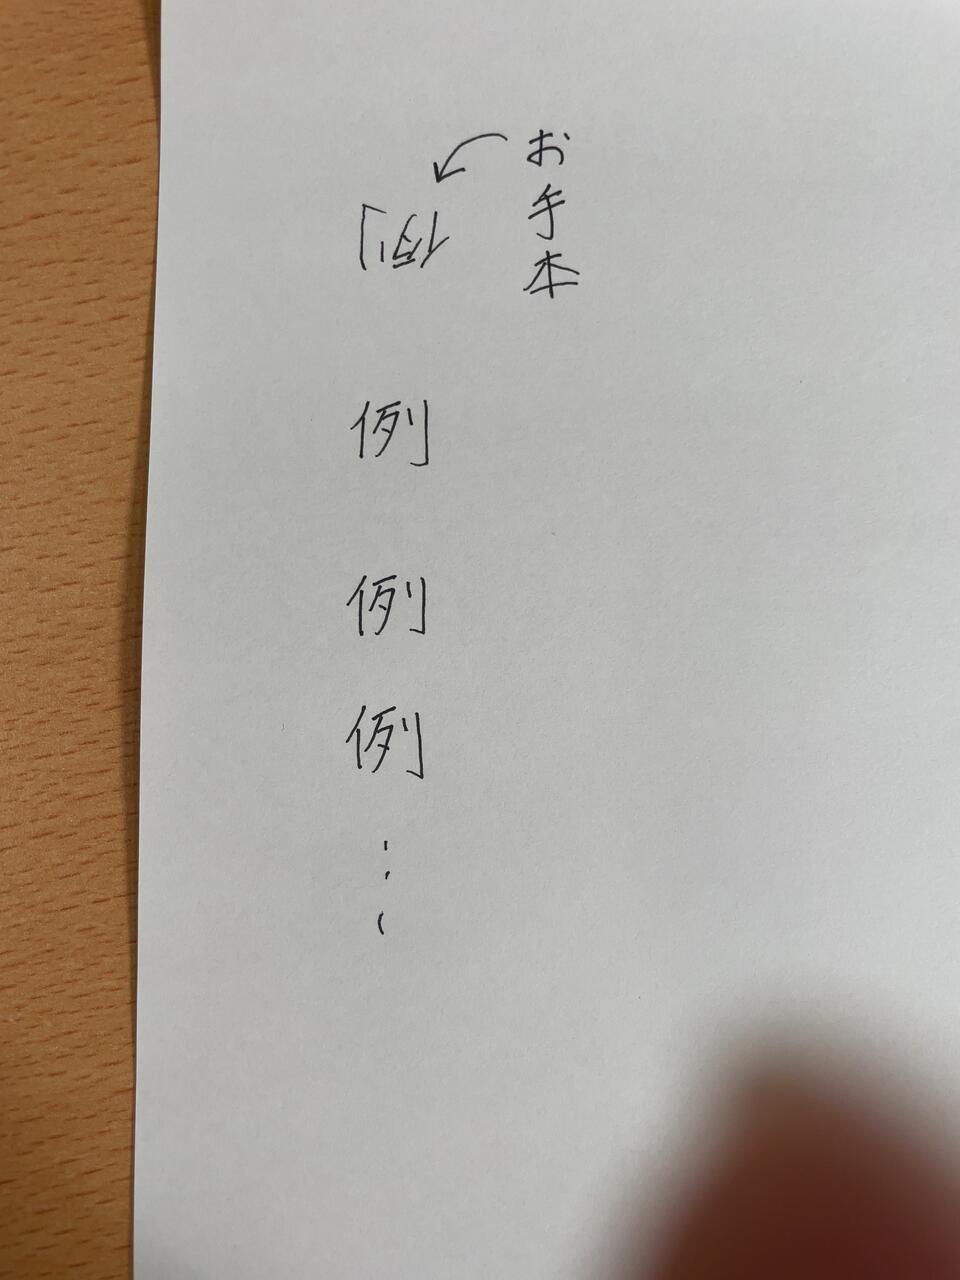 お手本
例
例
例
例
⋮